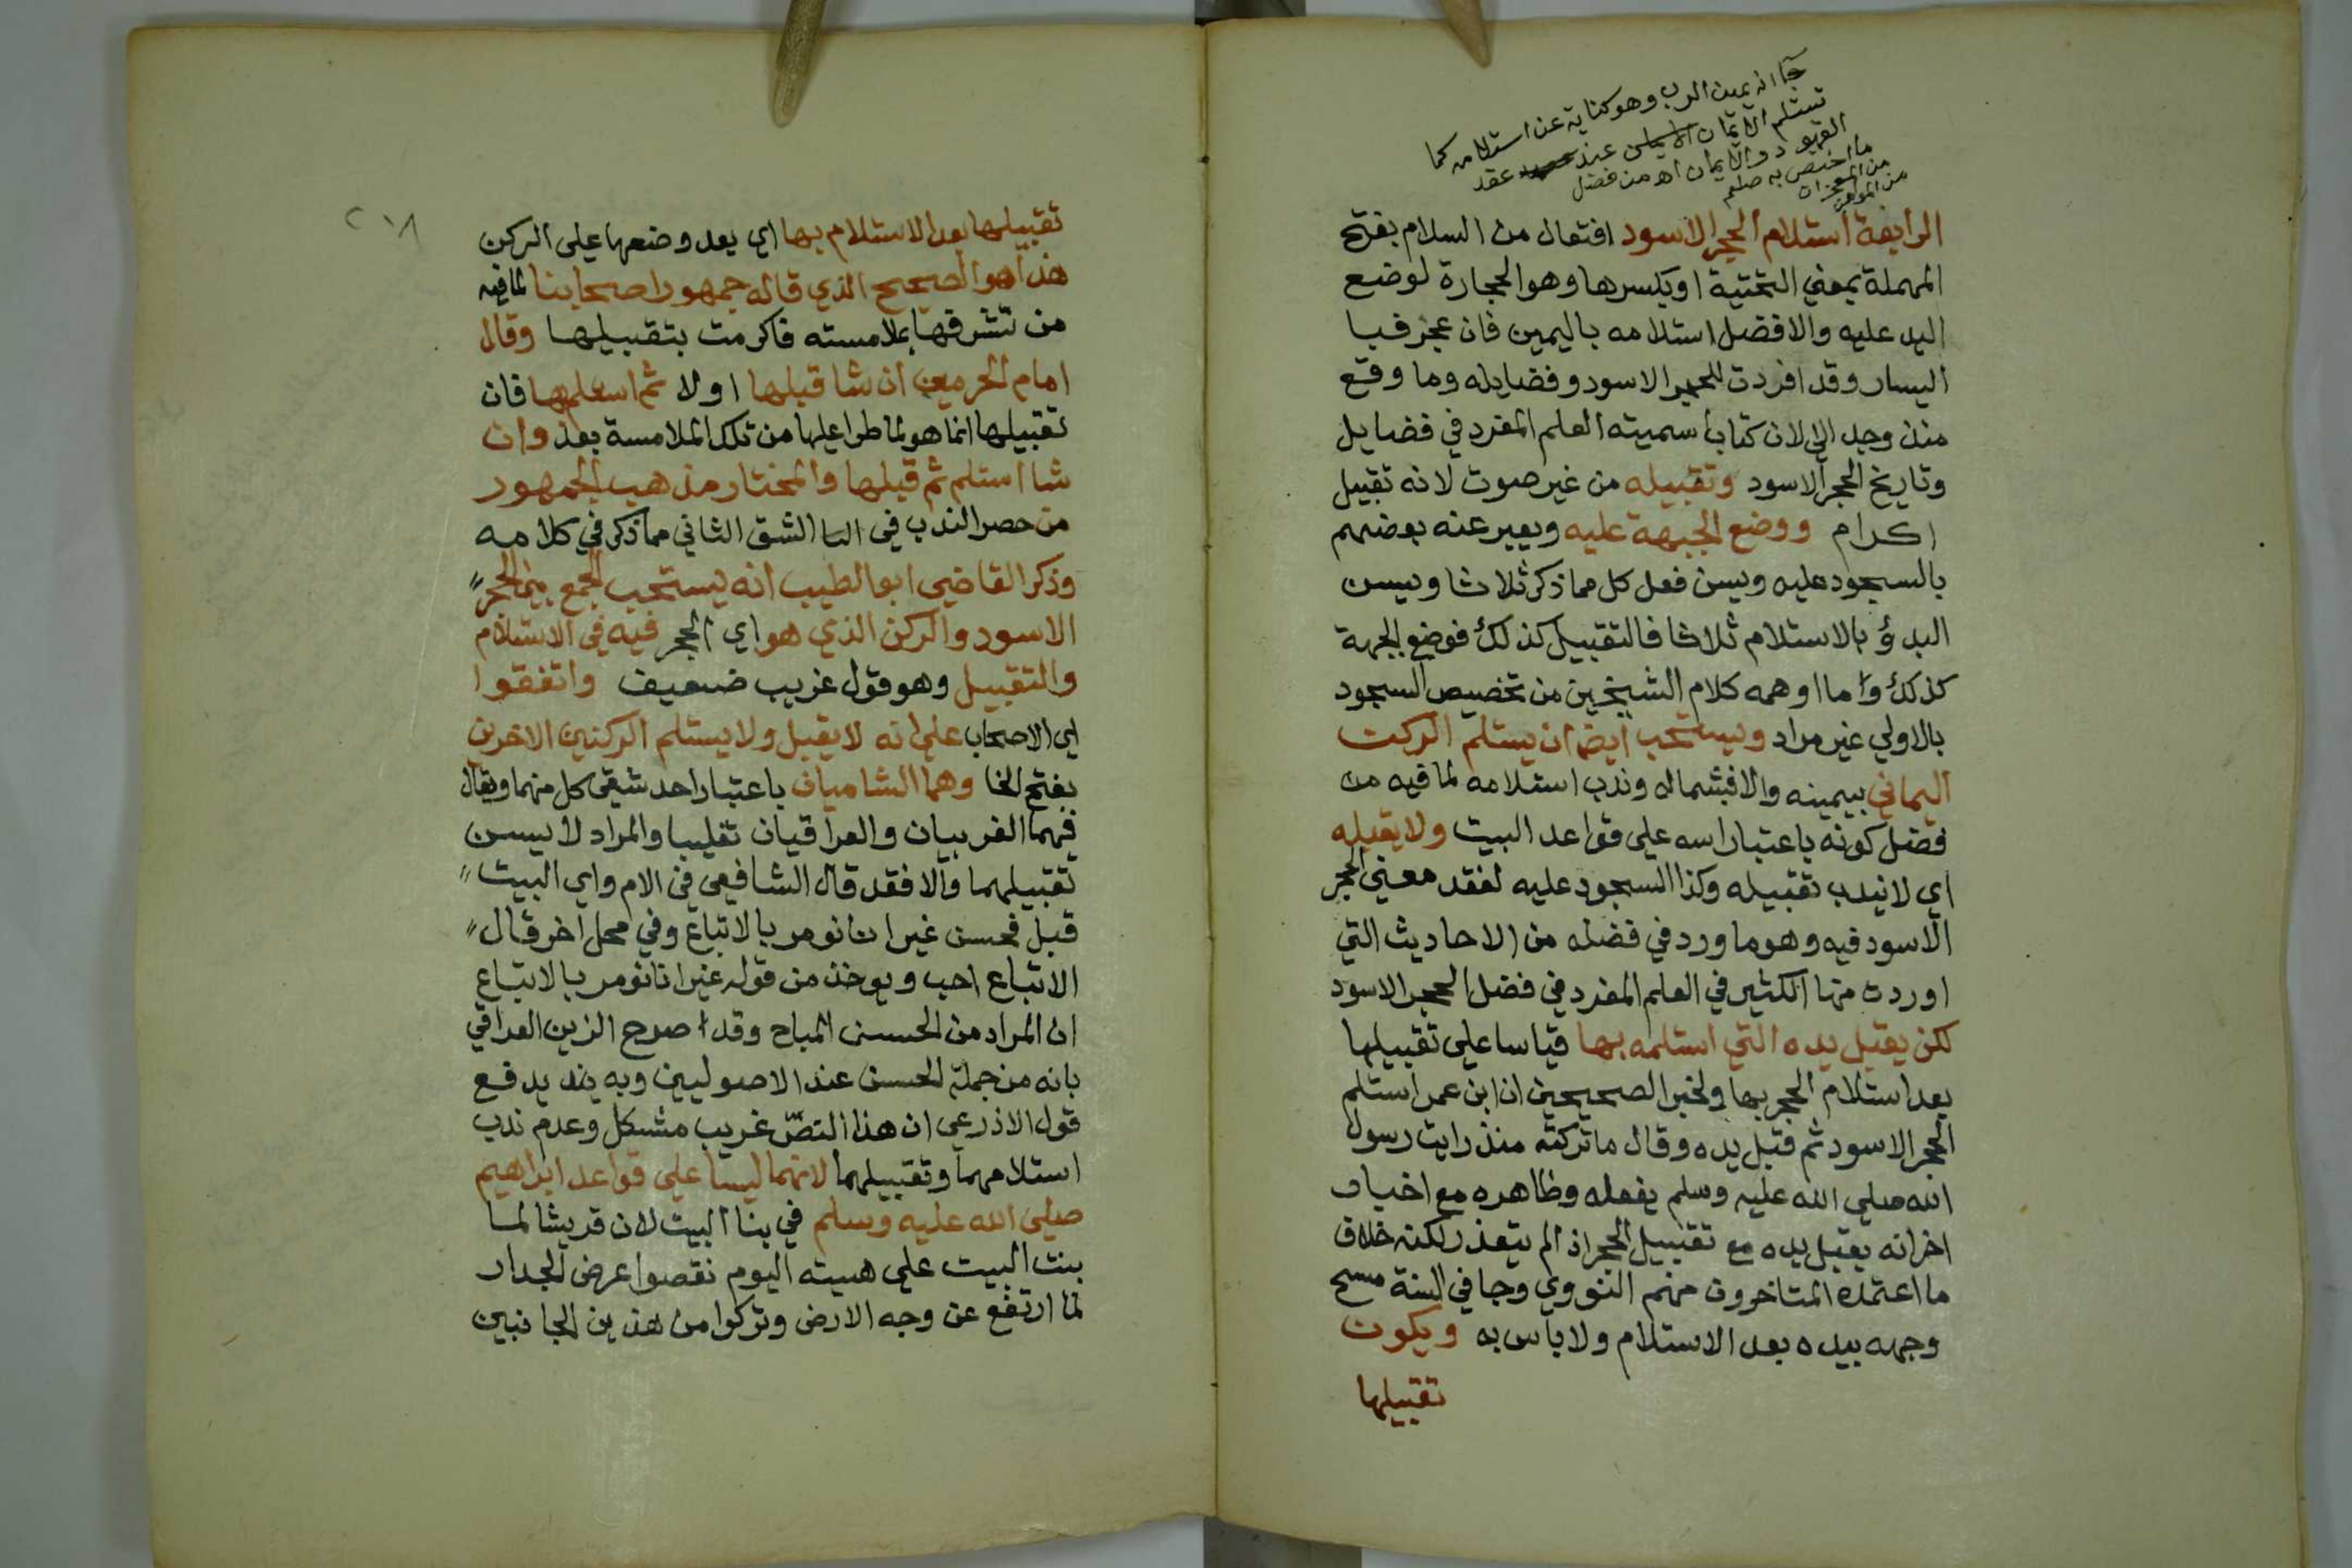 جآ انه يمين الرب وهو كناية عن استلامه كما
تستلم الايمان عند عقد
العهود والايمان اه من فضل
ما اختص به صلعم
من المعجزات
من المولف
الرابعة استلام الحجر الاسود افتعال من السلام بفتح
المهملة بمعني التحتية او بكسرها وهو الحجارة لوضع
اليد عليه والافضل استلامه باليمين فان عجز فبا
اليسار وقد افردت للحجر الاسود وفضايله وما وقع
منذ وجد الي لان كتابا سميته العلم المفرد في فضايل
وتاريخ الحجر الاسود وتقبيله من غير صوت لانه تقبيل
اكرام ووضع الجبهة عليه ويعبر عنه بعضهم
بالسجود عليه ويسن فعل كل مما ذكر ثلاثا ويسن
البدؤ بالاستلام ثلاثا فالتقبيل كذلك فوضع الجبهة
كذلك واما اوهمه كلام الشيخين من تخصيص السجود
بالاولي غير مراد ويستحب ايضا ان يستلم الركن
اليماني بيمينه والا فبشماله وندب استلامه لما فيه من
فضل كونه باعتبار اسه علي قواعد البيت ولا يقبله
اي لا يندب تقبيله وكذا السجود عليه لفقد معني الحجر
الاسود فيه وهو ما ورد في فضله من الاحاديث التي
اوردت منها الكثير في العلم المفرد في فضل الحجر الاسود
لكن يقبل يده التي استلمه بها قياسا علي تقبيلها
بعد استلام الحجر بها ولخبر الصحيحين ان ابن عمر استلم
الحجر الاسود ثم قبل يده وقال ما تركته منذ رايت رسول
الله صلي الله عليه وسلم يفعله وظاهره مع اخبار
اخر انه يقبل يده مع تقبيل الحجر اذ الم يتعذر لكنه خلاف
ما اعتمده المتاخرون منهم النووي وجا في السنة مسح
وجهه بيده بعد الاستلام ولا باس به ويكون
تقبيلها
٢١٨
تقبيلها بعد الاستلام بها اي بعد وضعها علي الركن
هذا هو الصحيح الذي قاله جمهور اصحابنا لما فيه
من تشرفها بملامسته فاكرمت بتقبيلها وقال
امام الحرمين ان شا قبلها اولا ثم استلم بها فان
تقبيلها انما هو لما طرا عليها من تلك الملامسة بعد وان
شا استلم ثم قبلها والمختار مذهب الجمهور
من حصر الندب في الشق الثاني مما ذكر في كلامه
وذكر القاضي ابو الطيب انه يستحب الجمع بين الحجر
الاسود والركن الذي هو اي الحجر فيه في الاستلام
والتقبيل وهو قول غريب ضعيف واتفقوا
اي الاصحاب علي انه لا يقبل ولا يستلم الركنين الاخرين
بفتح الخا وهما الشاميان باعتبار احد شقي كل منهما ويقال
فيهما الغربيان والعراقيان تغليبا والمراد لا يسن
تقبيلهما والا فقد قال الشافعي في الام واي البيت
قبل فحسن غير انا نومر بالاتباع وفي محل اخر قال
الاتباع احب ويوخذ من قوله غير انا نومر بالاتباع
ان المراد من الحسن المباح وقد اصرح الزين العراقي
بانه من جملة الحسن عند الاصوليين وبه يندفع
قول الاذرعي ان هذا النص غريب مشكل وعدم ندب
استلامهما وتقبيلهما لانهما ليسا علي قواعد ابراهيم
صلي الله عليه وسلم في بنا البيت لان قريشا لما
بنت البيت علي هييته اليوم نقصوا عرض الجدار
لما ارتفع عن وجه الارض وتركوا من هذين الجانبين